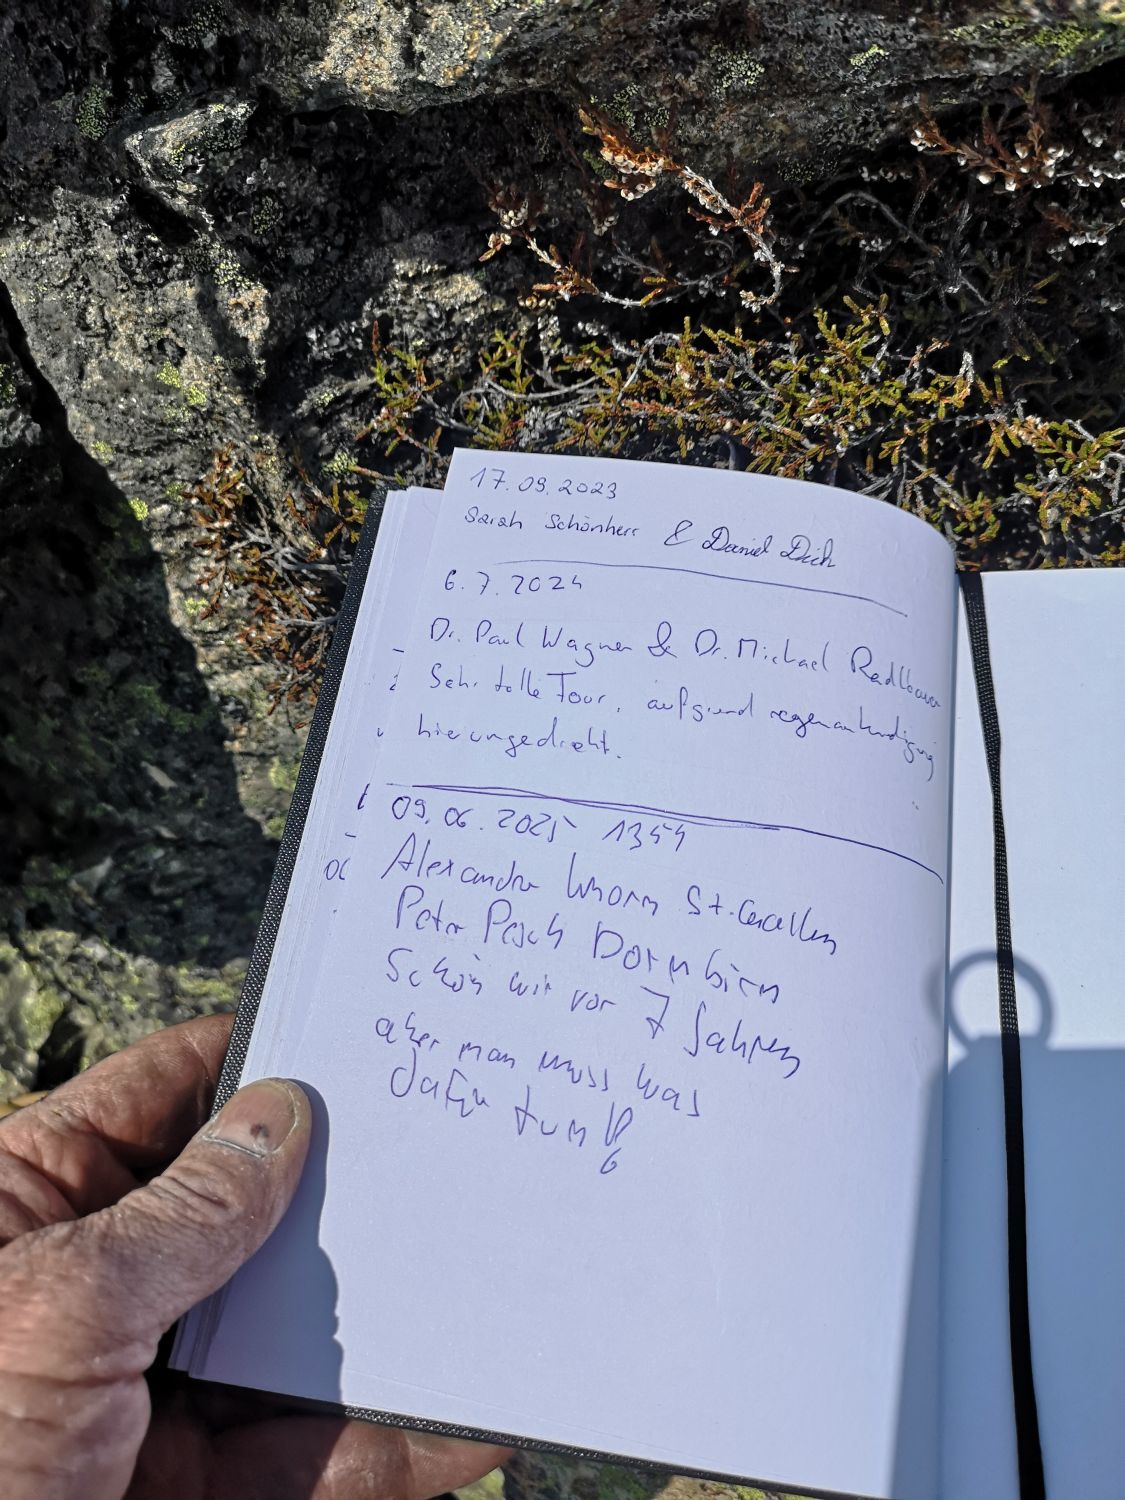 17.09.2023
Sarah Schönherr & Daniel Dich
6.7.2024
Dr. Paul Wagner & Dr. Michael Radlbauer
Sehr tolle Tour, aufgrund regenankündigung
hier umgedreht.
09.06.2025 1354
Alexandra St. Gallen
Peter Pesch Dornbirn
Schön wie vor 7 Jahren
aber man muss was
dafür tun